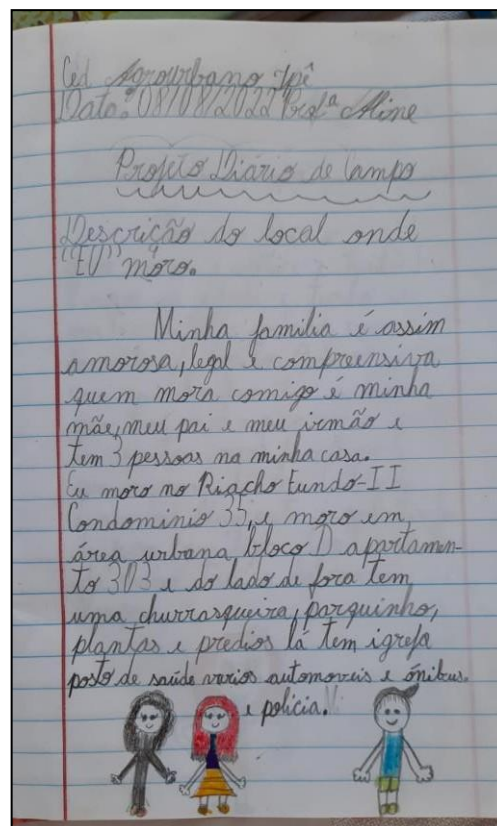 Ced Agrourbano Ipê
Data: 08/08/2022 Profª Aline
Projeto Diário de Campo
Descrição do local onde
"EU" môro.
Minha familia é assim
amorosa, legal e compreensiva
quem mora comigo é minha
mãe, meu pai e meu irmão e
tem 3 pessoas na minha casa.
Eu moro no Riacho Fundo-II
Condominio 35, e moro em
área urbana, bloco D apartamen-
to 303 e do lado de fora tem
uma churrasqueira, parquinho,
plantas e predios lá tem igreja
posto de saúde varios automoveis e ônibus.
e policia.